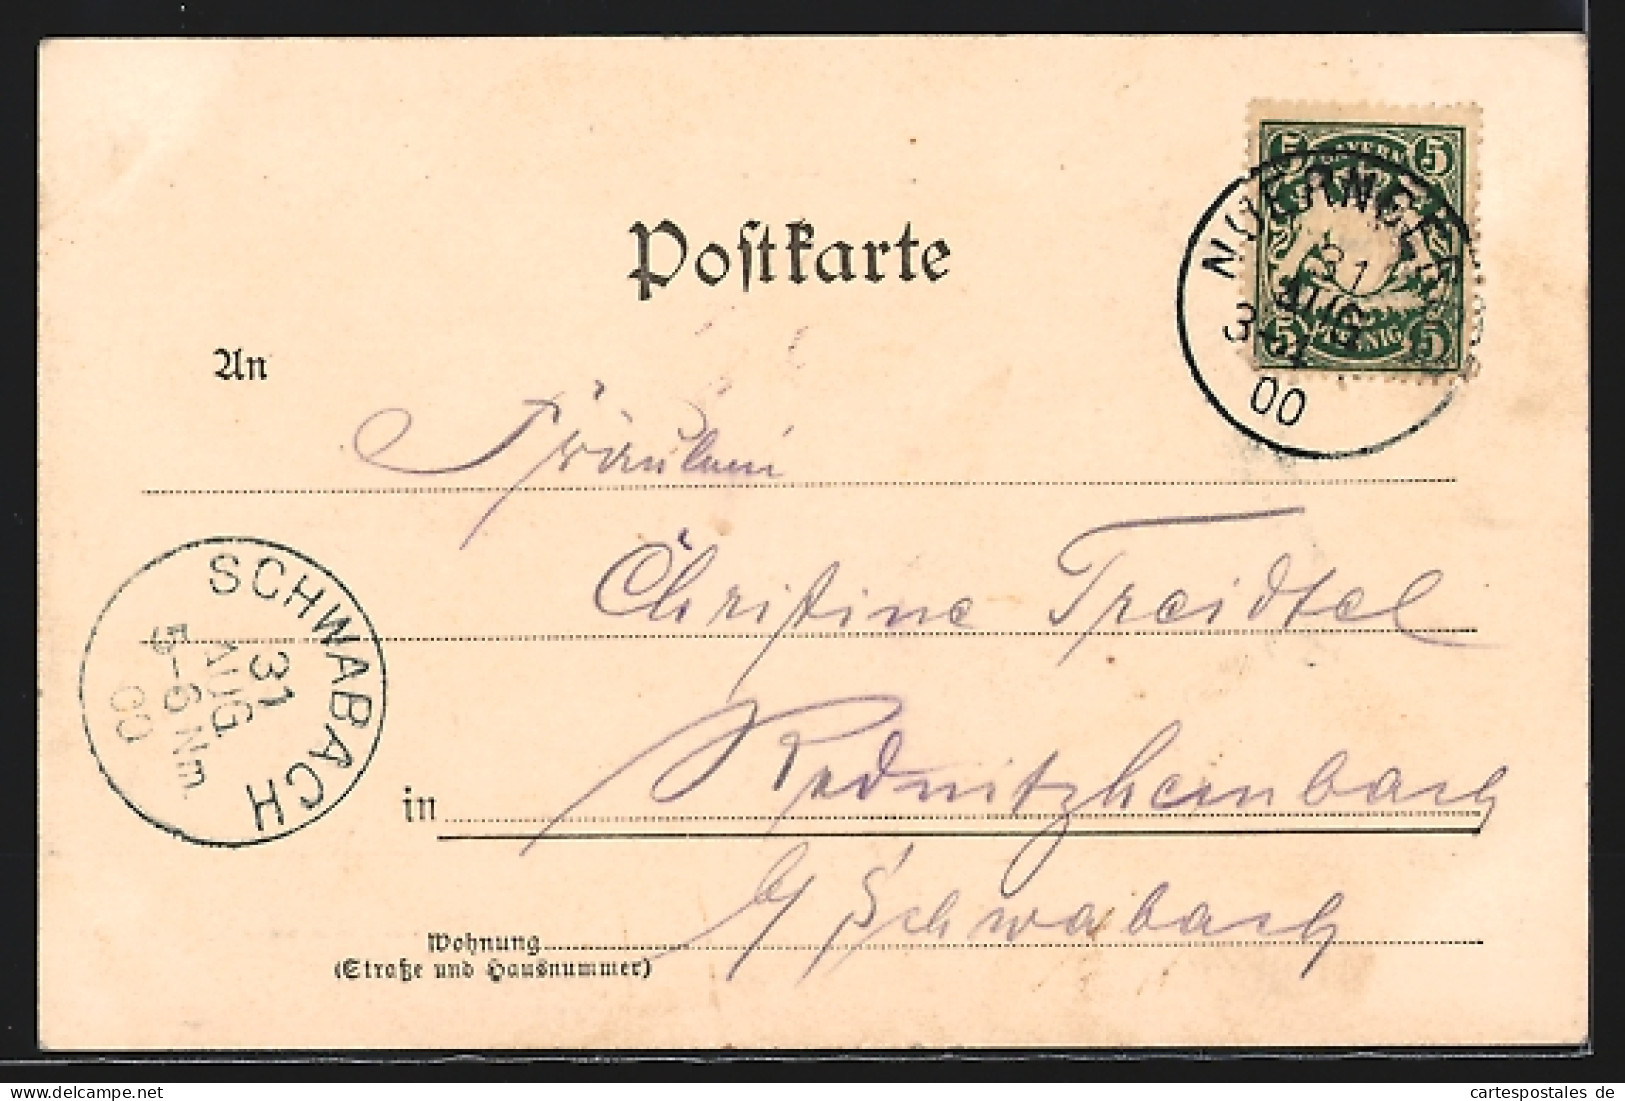 Postkarte
BAYERN
5 5
5 5
PFENNIG
NUERNBERG
31
AUG
3-4
00
An
Fräulein
Christine Treidtel
SCHWABACH
31
AUG
5-6 Nm.
00
in Rednitzhembach
b/ Schwabach
Wohnung
(Straße und Hausnummer)
cartespostales de